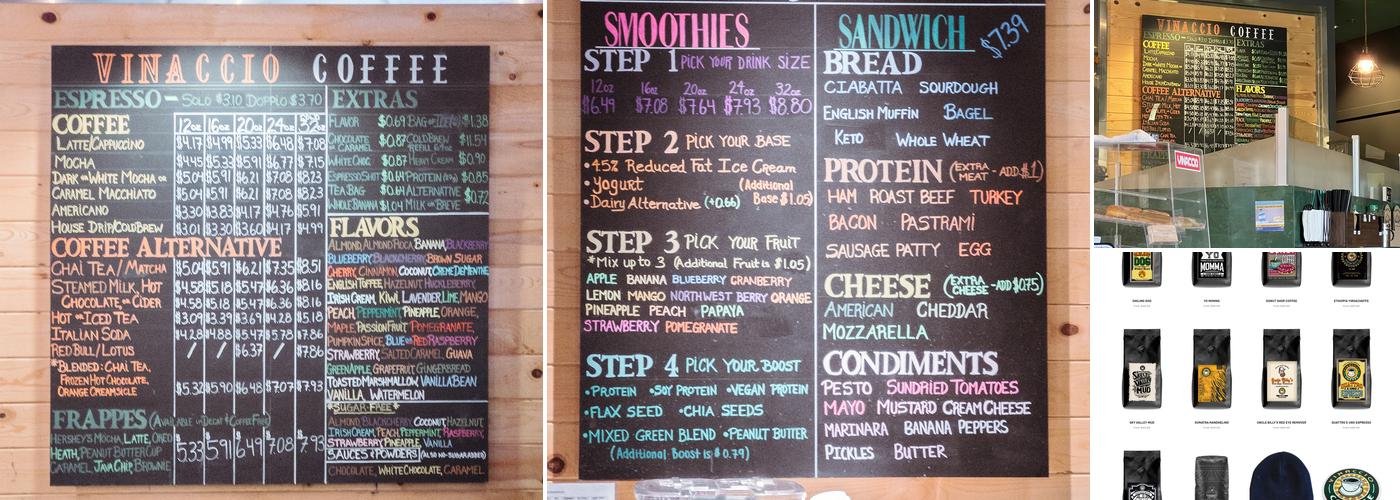 VINACCIO COFFEE
ESPRESSO — SOLO $3.10 DOPPLO $3.70
COFFEE 12oz 16oz 20oz 24oz 32oz
LATTE/CAPPUCCINO $4.17 $4.99 $5.33 $6.48 $7.08
MOCHA $4.45 $5.05 $5.91 $6.77 $7.15
DARK OR WHITE MOCHA OR $5.04 $5.91 $6.21 $7.08 $8.23
CARAMEL MACCHIATO $5.04 $5.91 $6.21 $7.08 $8.23
AMERICANO $3.30 $3.83 $4.17 $4.76 $5.91
HOUSE DRIP/COLD BREW $3.01 $3.30 $3.60 $4.17 $4.99
COFFEE ALTERNATIVE
CHAI TEA/MATCHA $5.04 $5.91 $6.21 $7.35 $8.51
STEAMED MILK, HOT $4.58 $5.18 $5.47 $6.36 $8.16
CHOCOLATE, OR CIDER $4.58 $5.18 $5.47 $6.36 $8.16
HOT OR ICED TEA $3.09 $3.39 $3.69 $4.28 $5.18
ITALIAN SODA $4.28 $4.88 $5.47 $5.78 $7.86
RED BULL/LOTUS / / $6.37 / $7.86
*BLENDED: CHAI TEA,
FROZEN HOT CHOCOLATE,
ORANGE CREAMSICLE $5.32 $5.90 $6.48 $7.07 $7.93
FRAPPES (AVAILABLE IN DECAF & COFFEE FREE)
HERSHEY'S MOCHA, LATTE, OREO
HEATH, PEANUT BUTTER CUP 5.33 5.91 6.49 7.08 7.93
CARAMEL, JAVA CHIP, BROWNIE
EXTRAS
FLAVOR $0.69 BAG OF ICE $1.38
CHOCOLATE OR CARAMEL $0.87 COLD BREW REFILL 64oz $11.54
WHITE CHOC $0.87 HEAVY CREAM $0.90
ESPRESSO SHOT $0.64 PROTEIN $0.85
TEA BAG $0.61 ALTERNATIVE
WHOLE BANANA $1.04 MILK OR BREVE $0.72
FLAVORS
ALMOND, ALMOND ROCA, BANANA, BLACKBERRY
BLUEBERRY, BLACKCHERRY, BROWN SUGAR
CHERRY, CINNAMON, COCONUT, CREME DE MENTHE
ENGLISH TOFFEE, HAZELNUT, HUCKLEBERRY,
IRISH CREAM, KIWI, LAVENDER, LIME, MANGO
PEACH, PEPPERMINT, PINEAPPLE, ORANGE,
MAPLE, PASSIONFRUIT, POMEGRANATE,
PUMPKIN SPICE, BLUE OR RED RASPBERRY
STRAWBERRY, SALTED CARAMEL, GUAVA
GREEN APPLE, GRAPEFRUIT, GINGERBREAD
TOASTED MARSHMALLOW, VANILLA BEAN
VANILLA, WATERMELON
*SUGAR-FREE*
ALMOND, BLACKCHERRY, COCONUT, HAZELNUT,
IRISH CREAM, PEACH, PEPPERMINT, RASPBERRY,
STRAWBERRY, PINEAPPLE, VANILLA
SAUCES & POWDERS (ALSO NO-SUGAR ADDED)
CHOCOLATE, WHITE CHOCOLATE, CARAMEL
SMOOTHIES
STEP 1 PICK YOUR DRINK SIZE
12oz 16oz 20oz 24oz 32oz
$6.49 $7.08 $7.64 $7.93 $8.80
STEP 2 PICK YOUR BASE
•45% Reduced Fat Ice Cream
•Yogurt (Additional
•Dairy Alternative (+0.66) Base $1.05)
STEP 3 PICK YOUR FRUIT
*Mix up to 3 (Additional Fruit is $1.05)
APPLE BANANA BLUEBERRY CRANBERRY
LEMON MANGO NORTHWEST BERRY ORANGE
PINEAPPLE PEACH PAPAYA
STRAWBERRY POMEGRANATE
STEP 4 PICK YOUR BOOST
•PROTEIN •SOY PROTEIN •VEGAN PROTEIN
•FLAX SEED •CHIA SEEDS
•MIXED GREEN BLEND •PEANUT BUTTER
(Additional Boost is $0.79)
SANDWICH $7.39
BREAD
CIABATTA SOURDOUGH
ENGLISH MUFFIN BAGEL
KETO WHOLE WHEAT
PROTEIN (EXTRA MEAT - ADD $1)
HAM ROAST BEEF TURKEY
BACON PASTRAMI
SAUSAGE PATTY EGG
CHEESE (EXTRA CHEESE - ADD $0.75)
AMERICAN CHEDDAR
MOZZARELLA
CONDIMENTS
PESTO SUNDRIED TOMATOES
MAYO MUSTARD CREAM CHEESE
MARINARA BANANA PEPPERS
PICKLES BUTTER
VINACCIO COFFEE
ESPRESSO
EXTRAS
COFFEE
COFFEE ALTERNATIVE
FLAVORS
VINACCIO
DOG
YO MOMMA
SMILING DOG
YO MOMMA
DONUT SHOP COFFEE
ETHIOPIA YIRGACHEFFE
SKY VALLEY MUD
SKY VALLEY MUD
SUMATRA MANDHELING
UNCLE BILLY'S RED EYE REMOVER
QUATTRO'S VIBE ESPRESSO